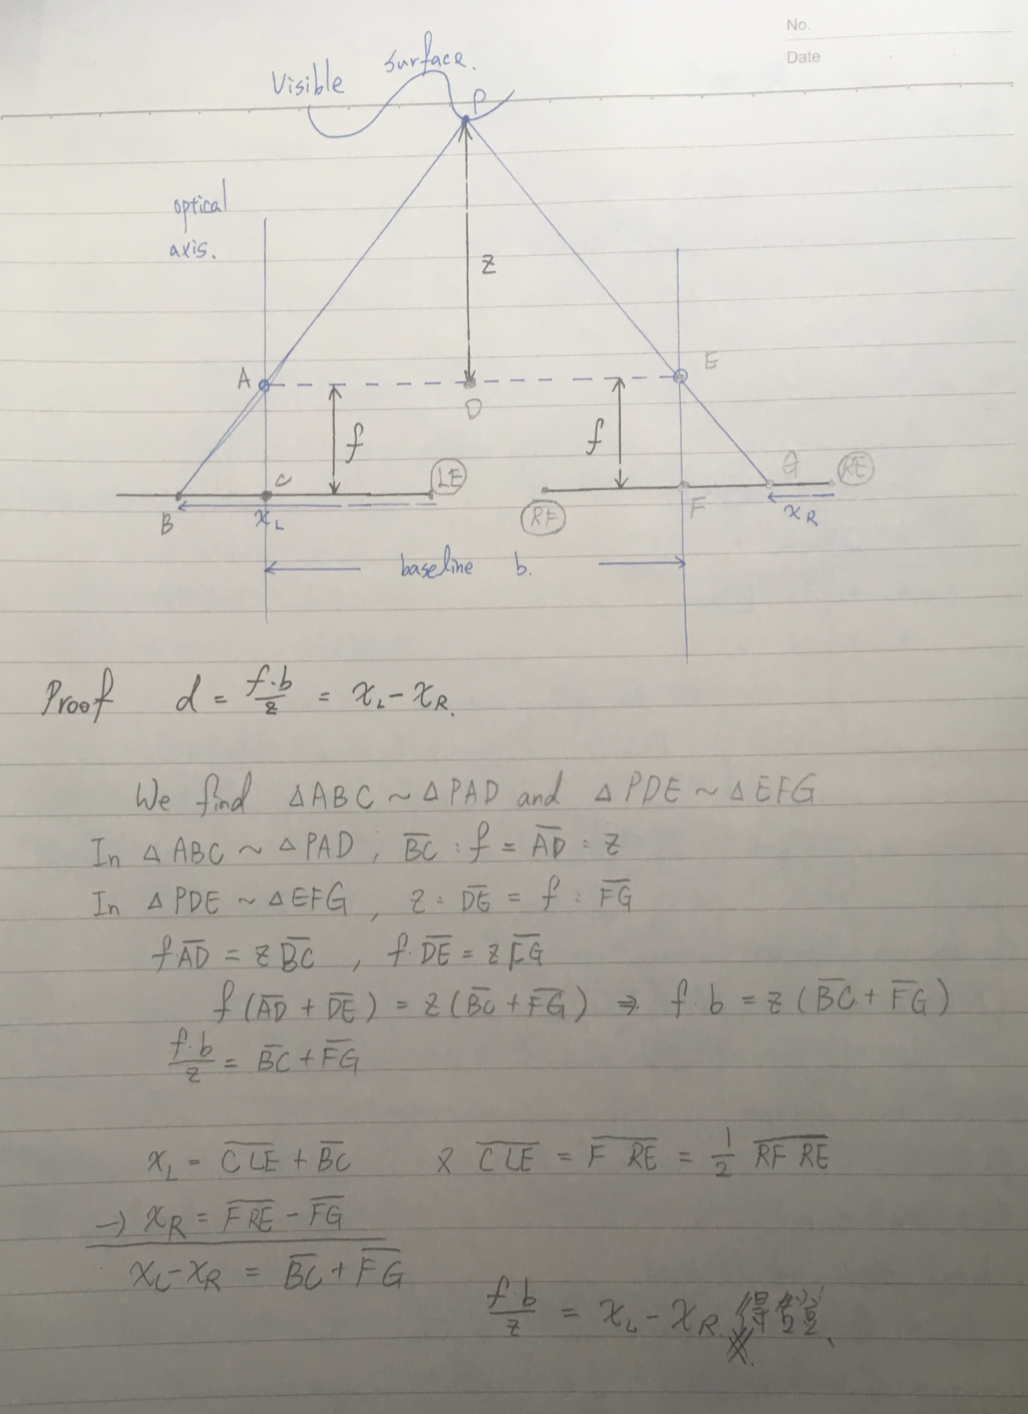 No.
Date
Visible surface.
P
optical
axis.
z
A
E
D
f
f
C
LE
G
RE
B
x_L
RF
F
x_R
baseline b.
Proof d = f·b/z = x_L - x_R.
We find △ABC ~ △PAD and △PDE ~ △EFG
In △ABC ~ △PAD, B̅C̅ : f = A̅D̅ : z
In △PDE ~ △EFG, z : D̅E̅ = f : F̅G̅
f A̅D̅ = z B̅C̅ , f·D̅E̅ = z F̅G̅
f (A̅D̅ + D̅E̅) = z (B̅C̅ + F̅G̅) ⇒ f·b = z (B̅C̅ + F̅G̅)
f·b/z = B̅C̅ + F̅G̅
x_L = C̅ L̅E̅ + B̅C̅ & C̅ L̅E̅ = F̅ R̅E̅ = 1/2 R̅F̅ R̅E̅
-) x_R = F̅R̅E̅ - F̅G̅
x_L - x_R = B̅C̅ + F̅G̅
f·b/z = x_L - x_R. 得證